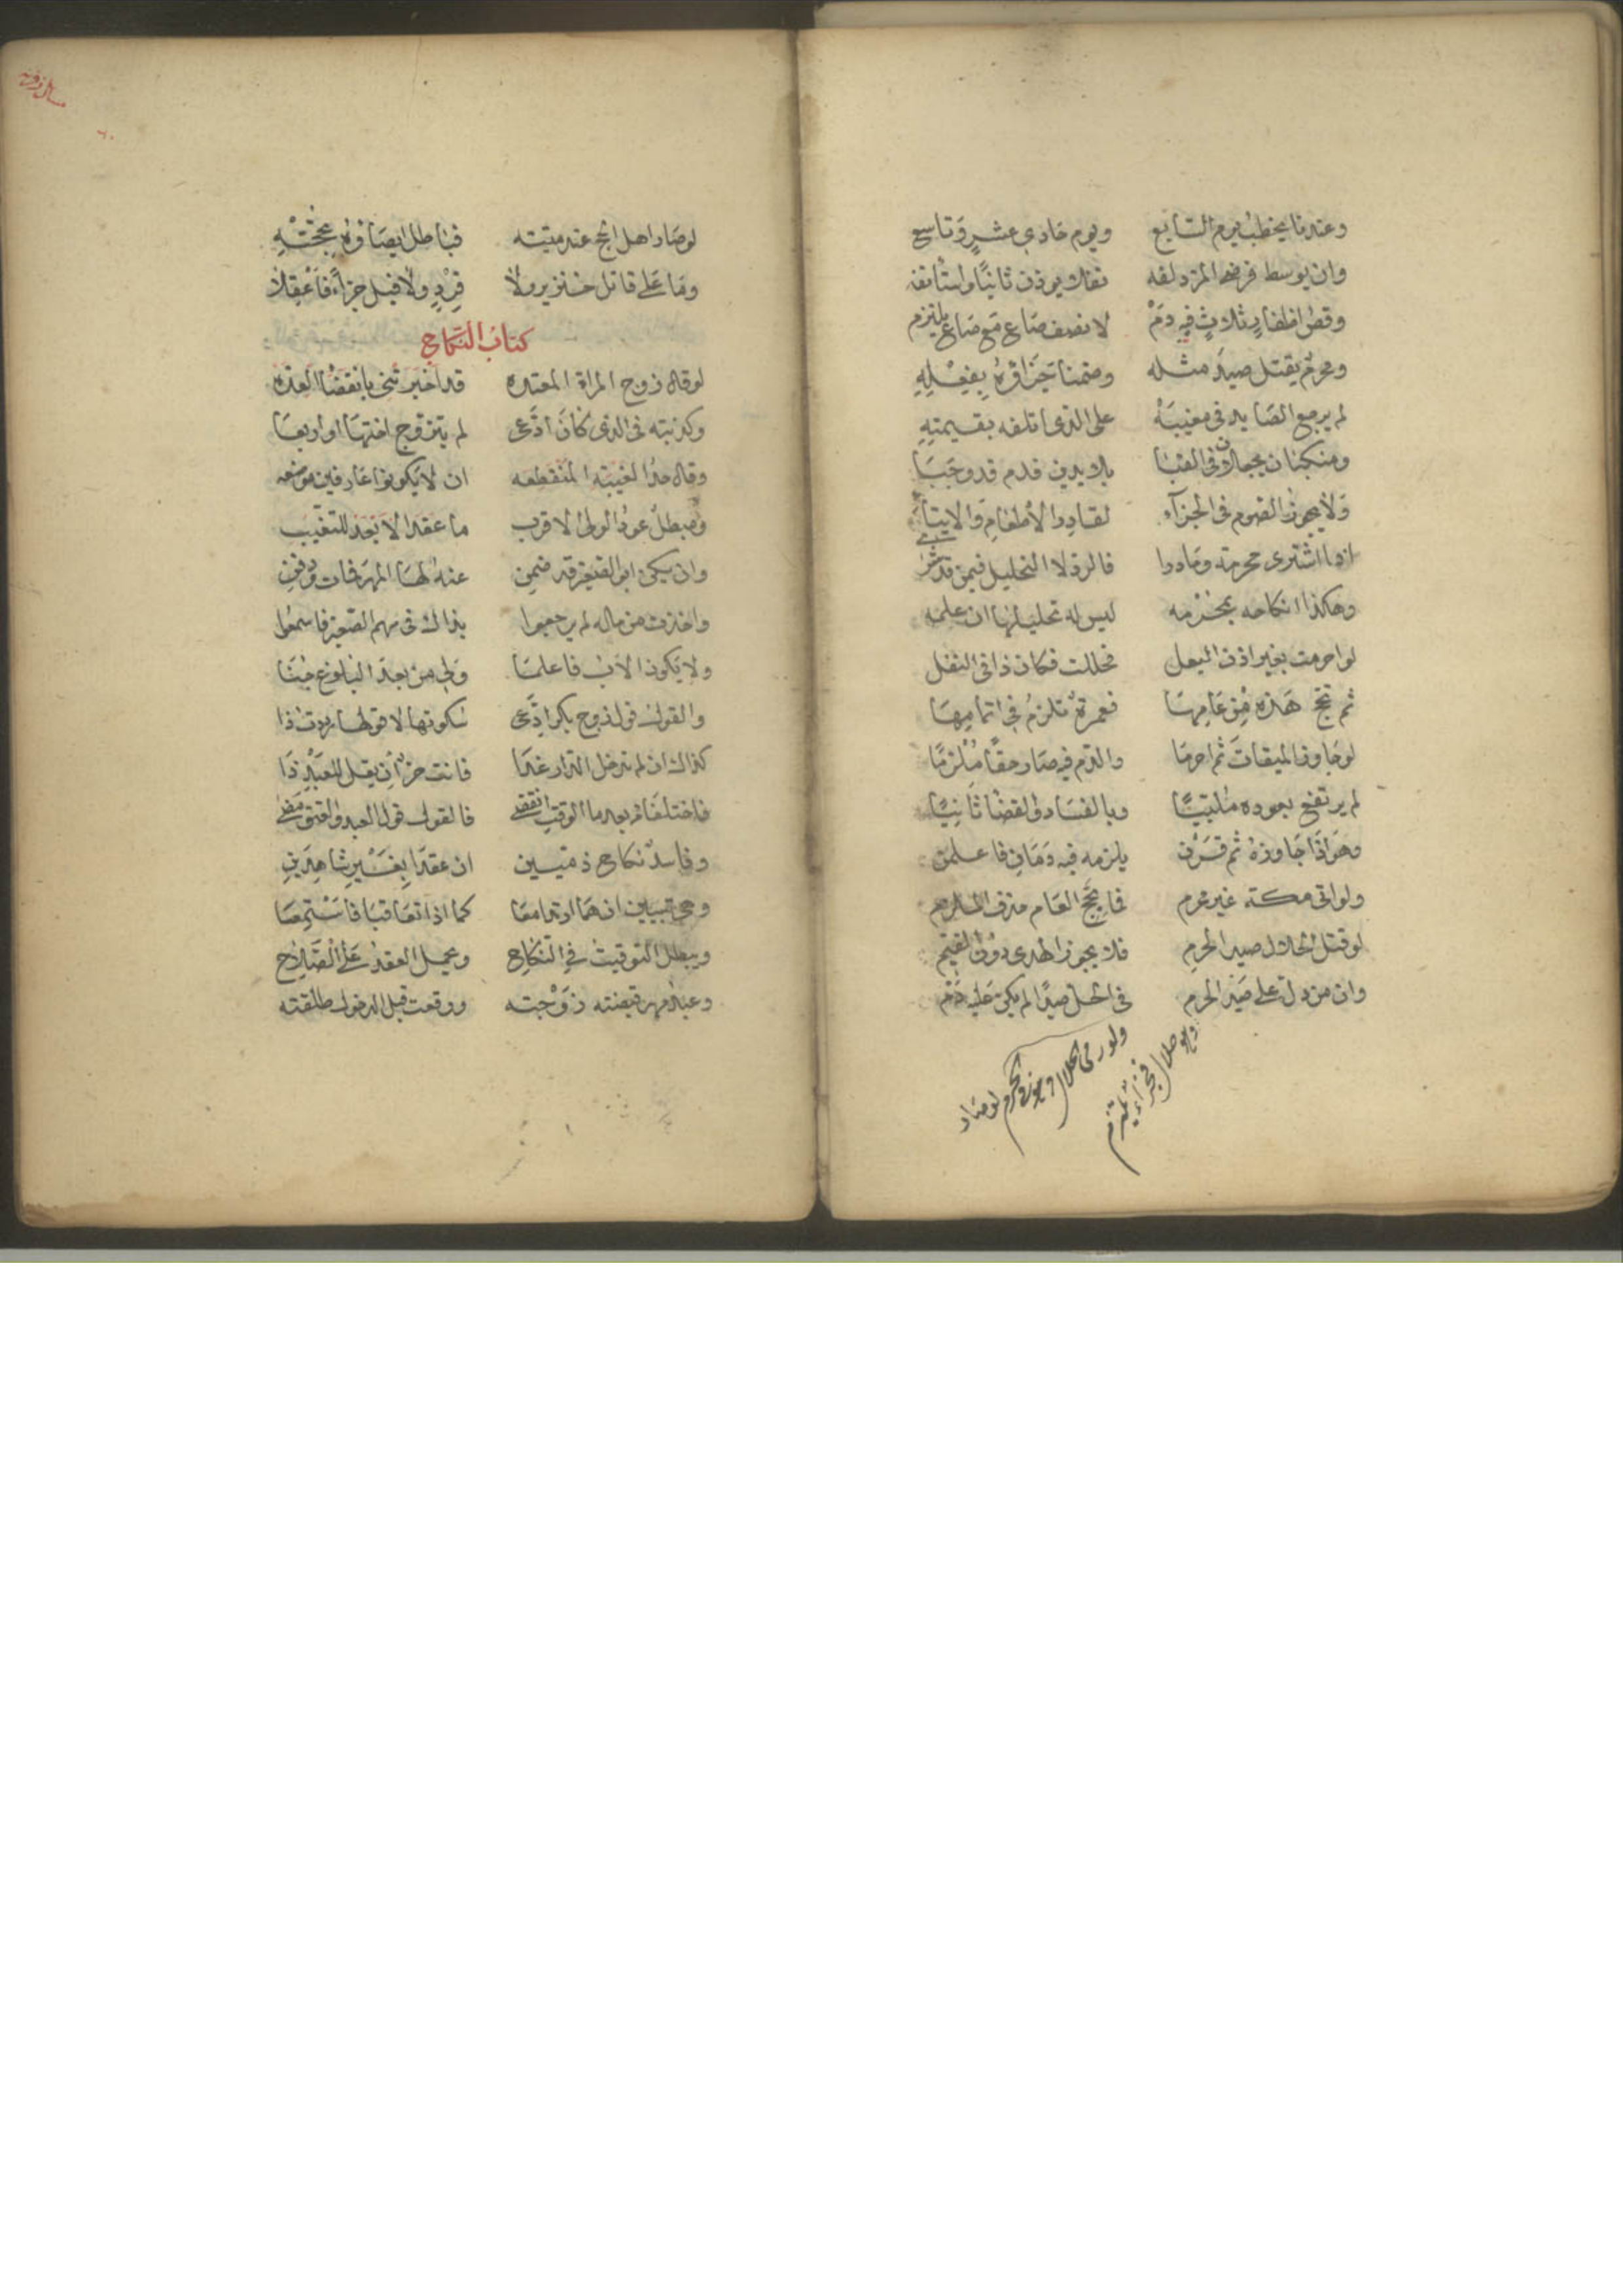 وعندنا يخطب يوم السابع ويوم حادي عشر وتاسع
وان يوسط فرضه المزدلفه نفلا يوذن ثانيا واستأنفه
وقص اظفار ثلاث فيه دم لا نصف صاع مع صاع يلتزم
ومحرم يقتل صيد مثله وضمنا جزاؤه بفعله
لم يرجع الصايد في مغيبه على الذي اتلفه بقيمته
ومنكبان يجعلان في القبا بلا يدين فدم قد وجبا
ولا يجوز الصوم في الجزآء لقادر الاطعام والايتاء
اذا اشترى محرمة وما درا فالرد لا التحليل فيمن قد شرى
وهكذا انكاحه بمحرمه ليس له تحليلها ان علمه
لو احرمت بغير اذن البعل فحللت فكان ذا في النفل
ثم تحج هذه من عامها فعمرة تلزم في اتمامها
لو جاوز الميقات ثم احرما والدم فيه صار حقا ملزما
لم يرتفع بعوده ملبيا وبالفساد والقضا ثانيا
وهو اذا جاوزه ثم قرن يلزمه فيه دمان فاعلمن
ولو اتى مكة غير محرم فاحج العام
لو قتل الحلال صيد الحرم فلا يجوز الهدى دون القيم
وان من دل على صيد الحرم في الحل صيدا لم يكن عليه دم
ولو رمى الحلال
وهو حلال فجزاء يلتزم
لوصاد
مسائل زفر
٦٠
لوصاد اهل الحج عند ميتته فباطل ايصاؤه بحجته
وما على قاتل خنزير ولا قرد ولا فيل جزاء فاعقلا
كتاب النكاح
لو قال زوج المراة المعتده قد اخبرتني بانقضا العده
وكذبته في الذي كان ادعى لم يتزوج اختها او اربعا
وقال حد الغيبة المنقطعه ان لا يكونوا عارفين موضعه
ومبطل عود الولى الاقرب ما عقد الابعد للتغيب
وان يكن ابو الصغير قد ضمن عنه لها المهر فمات ودفن
واخذت من ماله لم يرجعوا بذاك في سهم الصغير فاسمعوا
ولا يكون الاب فاعلما ولي من بعد البلوغ جننا
والقول قول زوج بكر ادعى سكوتها لا قولها رددت ذا
كذاك ان لم تدخل الدار غدا فانت حر ان يقل للعبد ذا
فاختلفا من بعد ما الوقت انقضى فالقول قول العبد والعتق مضى
وفاسد نكاح ذميين ان عقدا بغير شاهدين
ومجتبيين ان هما ارتدا معا كما اذا تعاقبا فاستمعا
ويبطل التوقيت في النكاح ويحمل العقد على الصلاح
وعبد مهر قبضته زوجته ووقعت قبل الدخول طلقته